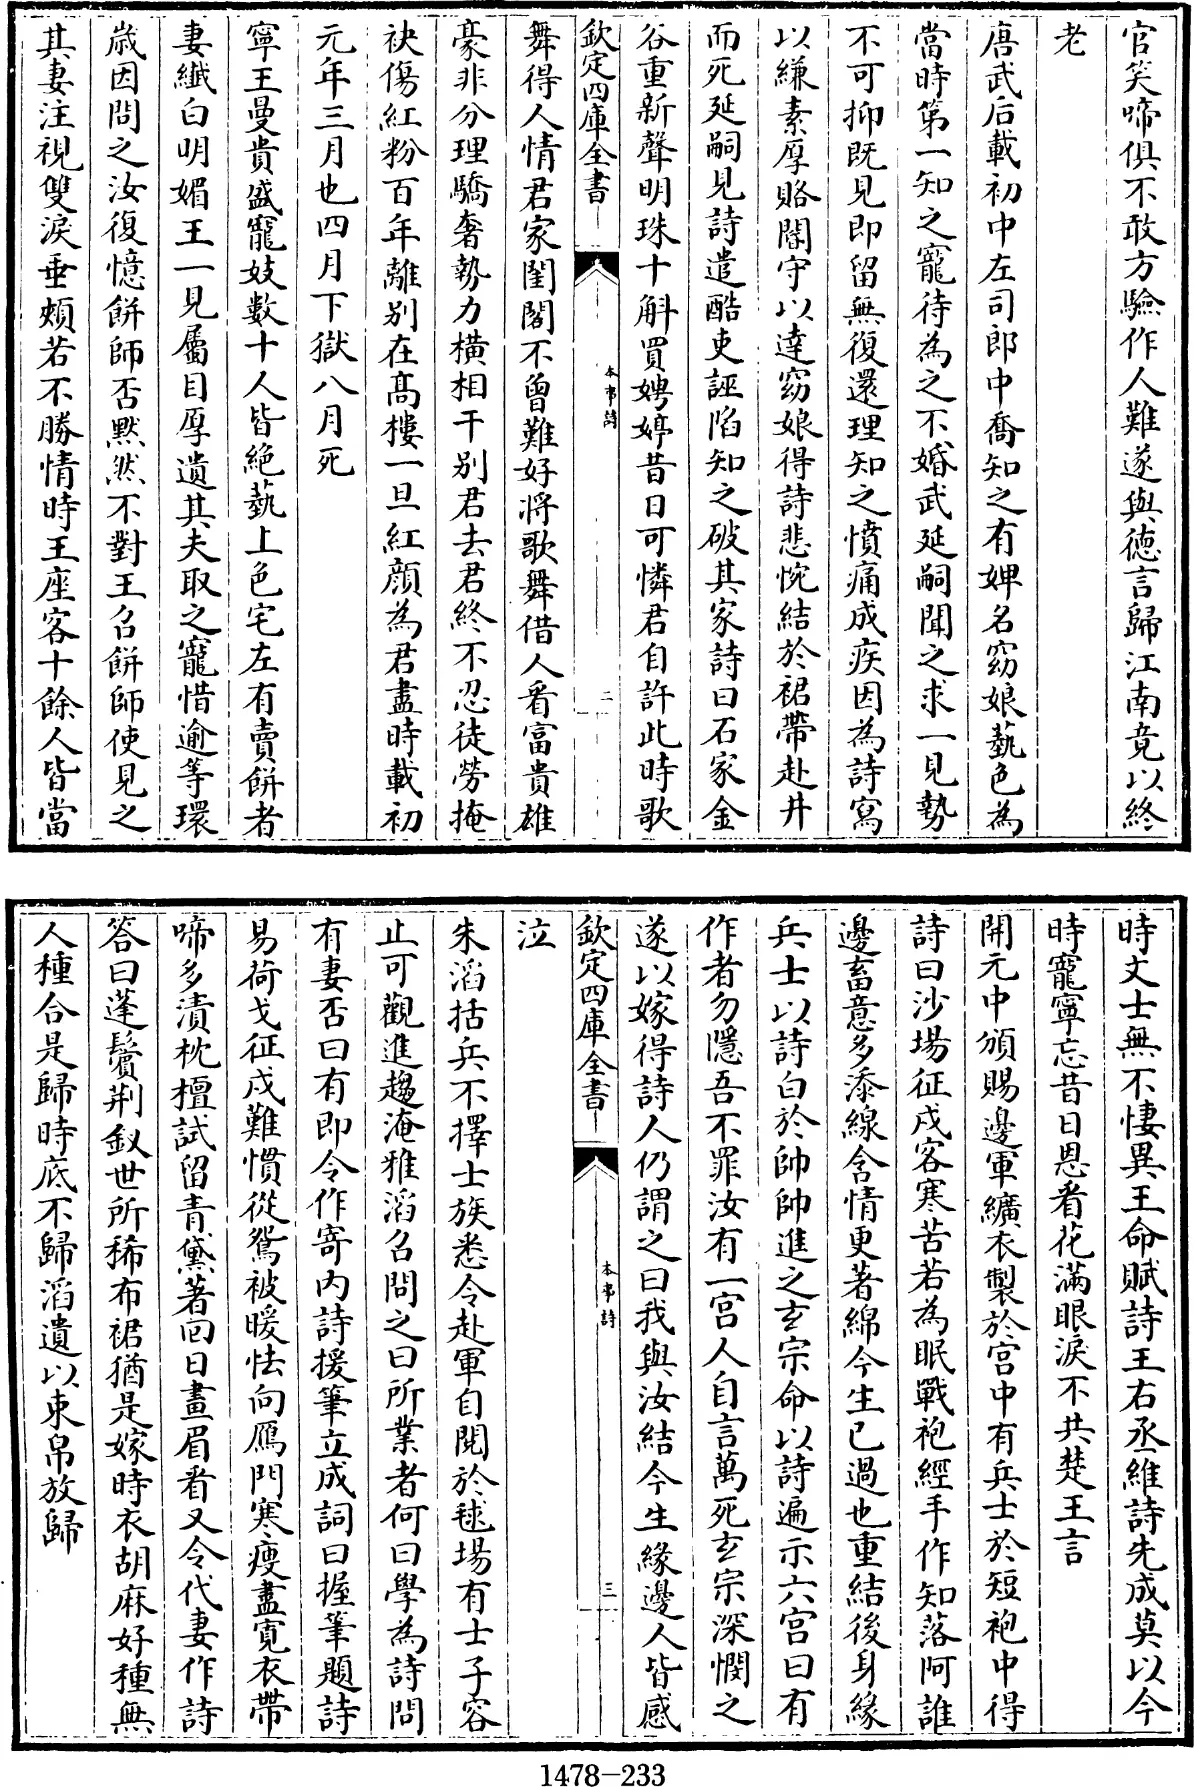 官笑啼俱不敢方驗作人難遂與德言歸江南竟以終
老
唐武后載初中左司郎中喬知之有婢名窈娘藝色為
當時第一知之寵待為之不婚武延嗣聞之求一見勢
不可抑既見即留無復還理知之憤痛成疾因為詩寫
以縑素厚賂閽守以達窈娘得詩悲惋結於裙帶赴井
而死延嗣見詩遣酷吏誣陷知之破其家詩曰石家金
谷重新聲明珠十斛買娉婷昔日可憐君自許此時歌
欽定四庫全書
本事詩
二
舞得人情君家閨閣不曾難好將歌舞借人看富貴雄
豪非分理驕奢勢力橫相干別君去君終不忍徒勞掩
袂傷紅粉百年離別在髙樓一旦紅顏為君盡時載初
元年三月也四月下獄八月死
寧王曼貴盛寵妓數十人皆絶藝上色宅左有賣餅者
妻纖白明媚王一見屬目厚遺其夫取之寵惜逾等環
歲因問之汝復憶餅師否默然不對王召餅師使見之
其妻注視雙淚垂頰若不勝情時王座客十餘人皆當
時文士無不悽異王命賦詩王右丞維詩先成莫以今
時寵寧忘昔日恩看花滿眼淚不共楚王言
開元中頒賜邊軍纊衣製於宫中有兵士於短袍中得
詩曰沙場征戍客寒苦若為眠戰袍經手作知落阿誰
邊畜意多添線含情更著綿今生已過也重結後身緣
兵士以詩白於帥帥進之玄宗命以詩遍示六宫曰有
作者勿隱吾不罪汝有一宫人自言萬死玄宗深憫之
遂以嫁得詩人仍謂之曰我與汝結今生緣邊人皆感
欽定四庫全書
本事詩
三
泣
朱滔括兵不擇士族悉令赴軍自閱於毬場有士子容
止可觀進趨淹雅滔召問之曰所業者何曰學為詩問
有妻否曰有即令作寄内詩援筆立成詞曰握筆題詩
易荷戈征戍難慣從鴛被暖怯向鴈門寒瘦盡寬衣帶
啼多漬枕檀試留青黛著回日畫眉看又令代妻作詩
答曰蓬鬢荆釵世所稀布裙猶是嫁時衣胡麻好種無
人種合是歸時底不歸滔遺以束帛放歸
1478-233